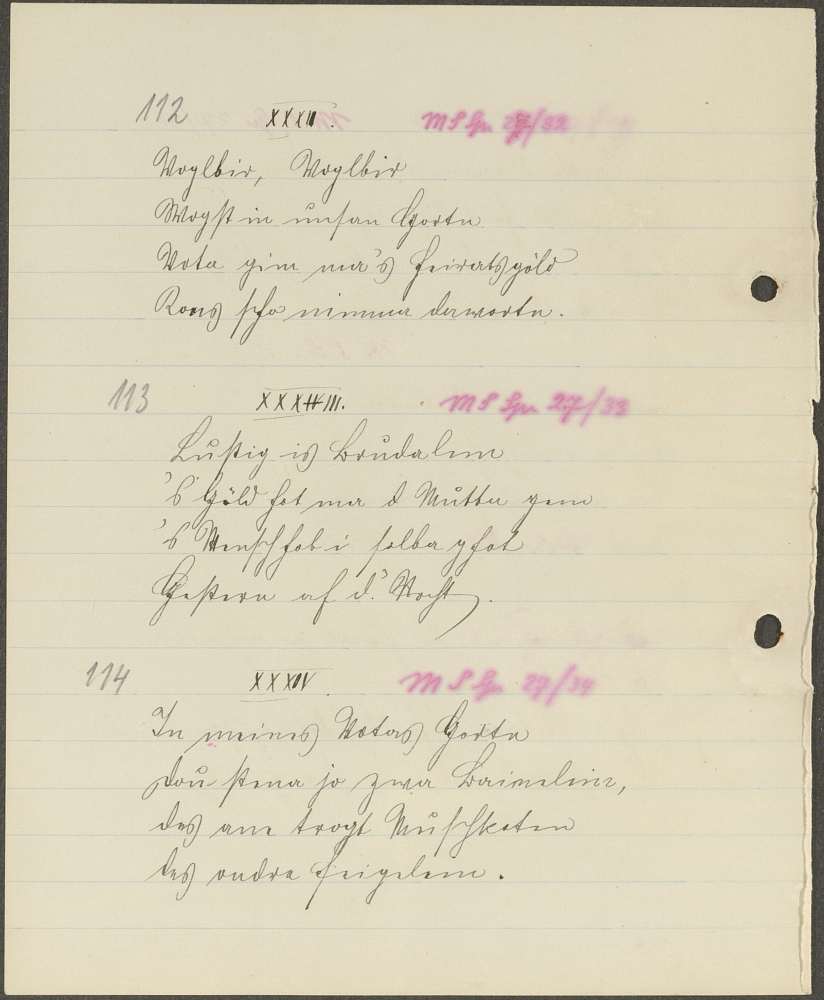 112 XXXII. MS Spr 27/32
Voglbir, Voglbir
Wogst in unsan Gortn
Vota gim ma's Heiratsgöld
Kons scho nimma dawortn.
113 XXXIII. MS Spr 27/33
Lustig is Brudalem
's Göld hot ma d Mutta gem
's Mensch hob i selba ghot
Gestern af d' Nocht.
114 XXXIV. MS Spr 27/34
In meines Votas Gortn
dou stena jo zwa Baimelein,
des ane trogt Muschkaten
des ondre Feigelein.